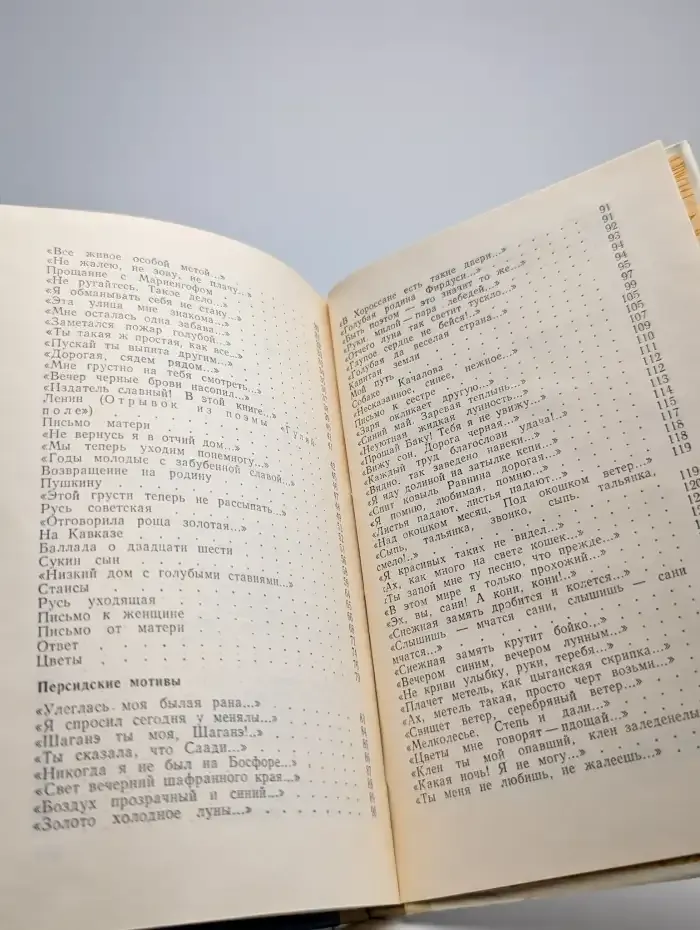 «Все живое особой метой...»
«Не жалею, не зову, не плачу...»
Прощание с Мариенгофом
«Не ругайтесь. Такое дело...»
«Я обманывать себя не стану...»
«Эта улица мне знакома...»
«Мне осталась одна забава...»
«Заметался пожар голубой...»
«Ты такая ж простая, как все...»
«Пускай ты выпита другим...»
«Дорогая, сядем рядом...»
«Мне грустно на тебя смотреть...»
«Вечер черные брови насопил...»
«Издатель славный! В этой книге...»
Ленин (Отрывок из поэмы «Гуляй-
поле»)
Письмо матери
«Не вернусь я в отчий дом...»
«Мы теперь уходим понемногу...»
«Годы молодые с забубенной славой...»
Возвращение на родину
Пушкину
«Этой грусти теперь не рассыпать...»
Русь советская
«Отговорила роща золотая...»
На Кавказе
Баллада о двадцати шести
Сукин сын
«Низкий дом с голубыми ставнями...»
Стансы
Русь уходящая
Письмо к женщине
Письмо от матери
Ответ
Цветы
Персидские мотивы
«Улеглась моя былая рана...»
«Я спросил сегодня у менялы...»
«Шаганэ ты моя, Шаганэ!..»
«Ты сказала, что Саади...»
«Никогда я не был на Босфоре...»
«Свет вечерний шафранного края...»
«Воздух прозрачный и синий...»
«Золото холодное луны...»
«В Хороссане есть такие двери...» 91
«Голубая родина Фирдуси...» 91
«Быть поэтом — это значит то же...» 92
«Руки милой — пара лебедей...» 93
«Отчего луна так светит тускло...» 94
«Глупое сердце не бейся!..» 94
«Голубая да веселая страна...» 95
Капитан земли 97
Мой путь 99
Собаке Качалова 105
«Несказанное, синее, нежное...» 105
Письмо к сестре 107
«Заря окликает другую...» 109
«Синий май. Заревая теплынь...» 110
«Неуютная жидкая лунность...» 111
«Прощай Баку! Тебя я не увижу...» 112
«Вижу сон. Дорога черная...» 112
«Каждый труд благослови удача!..» 113
«Видно, так заведено навеки...» 114
«Я иду долиной на затылке кепи...» 115
«Спит ковыль Равнина дорогая...» 118
«Я помню, любимая, помню...» 118
«Листья падают, листья падают...» 119
«Над окошком месяц. Под окошком ветер...»
«Сыпь, тальянка, звонко, сыпь, тальянка,
смело!..» 119
«Я красивых таких не видел...» 120
«Ах, как много на свете кошек...»
«Ты запой мне ту песню, что прежде...»
«В этом мире я только прохожий...»
«Эх, вы, сани! А кони, кони!..»
«Снежная замять дробится и колется...»
«Слышишь — мчатся сани, слышишь — сани
мчатся...»
«Снежная замять крутит бойко...»
«Вечером синим, вечером лунным...»
«Не криви улыбку, руки, теребя...»
«Плачет метель, как цыганская скрипка...»
«Ах, метель такая, просто черт возьми...»
«Свищет ветер, серебряный ветер...»
«Мелколесье. Степь и дали...»
«Цветы мне говорят — прощай...»
«Клен ты мой опавший, клен заледенелы
«Какая ночь! Я не могу...»
«Ты меня не любишь, не жалеешь...»